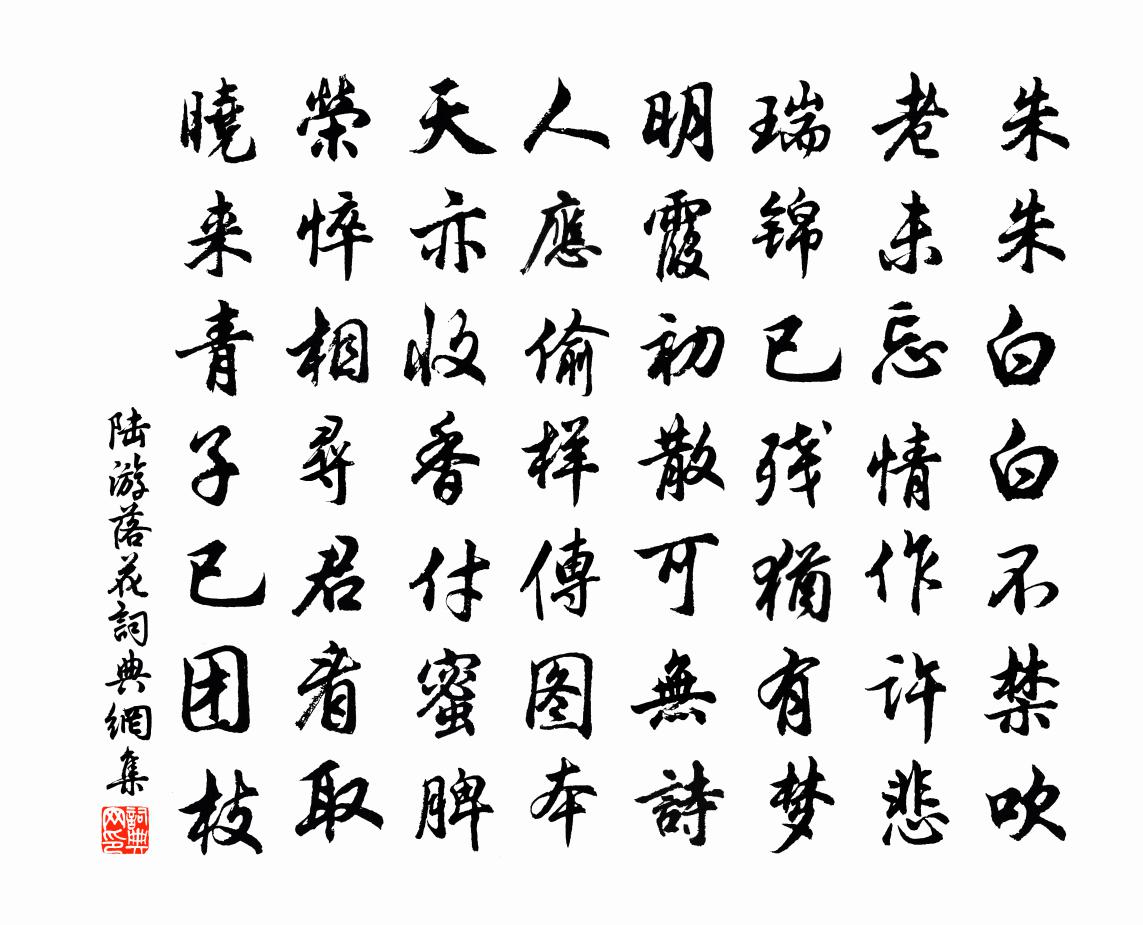 朱朱白白不禁吹
老未忘情作许悲
瑞锦已残犹有梦
明霞初散可無詩
人應偷样傳图本
天亦收香付蜜脾
榮悴相尋君看取
曉来青子已团枝
陆游落花詞典網集
詞典网印